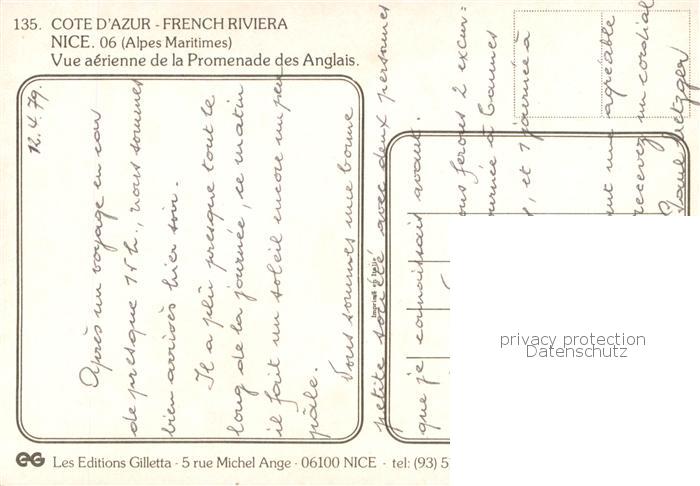 135. COTE D'AZUR - FRENCH RIVIERA
NICE. 06 (Alpes Maritimes)
Vue aérienne de la Promenade des Anglais.
12.4.79.
Après un voyage en car
de presque 15 h., nous sommes
bien arrivés hier soir.
Il a plu presque tout le
long de la journée, ce matin
il fait un soleil encore un peu
pâle.
Nous sommes une bonne
petite société avec deux personnes
que je connaissais avant.
ous ferons 2 excur=
ournée à Cannes
, et 1 journée à
nt une agréable
recevez un cordial
Paul Metzger
Imprimé en Italie
privacy protection
Datenschutz
EG Les Editions Gilletta - 5 rue Michel Ange - 06100 NICE - tel: (93) 5